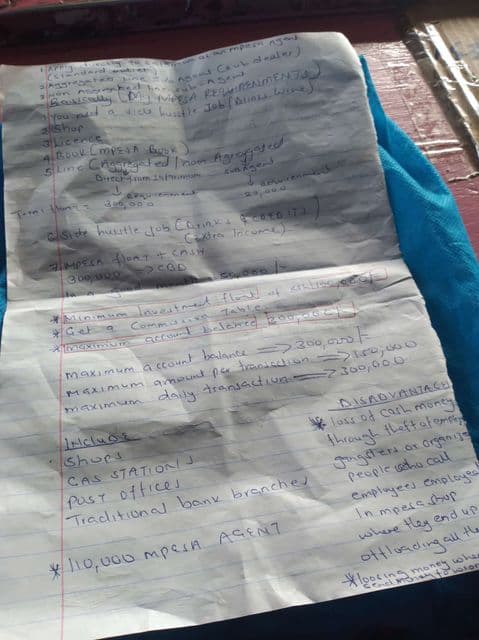 1 Apply directly to as an mpesa Agent
(standard outlet)
2 Aggregated line Agent (sub dealer)
3 non Aggregated sub Agent
* Basically (My MPESA REQUIREMENTS)
You need a side hustle Job
2 Shop
3 Licence
4 Book (MPESA Book)
5 Line (Aggregated / non Aggregated
Direct from Safaricom sub Agent
requirement requirement
300,000 20,000
6 Side hustle job (Drinks & CREDIT)
(Extra Income)
7 MPESA float + CASH
300,000 > CBD
In a 50,000/-
* Minimum Investment float of
* Get a Commission Table
* maximum account balance 300,000/-
maximum account balance => 300,000/-
maximum amount per transaction => 150,000
maximum daily transaction => 300,000
Include
Shops
GAS STATIONS
POST offices
Traditional bank branches
* 110,000 MPESA AGENT
DISADVANTAGES
* loss of cash money
through theft
gangsters or
people who call
employees employed
In mpesa shop
where they end up
offloading all the
* loosing money when